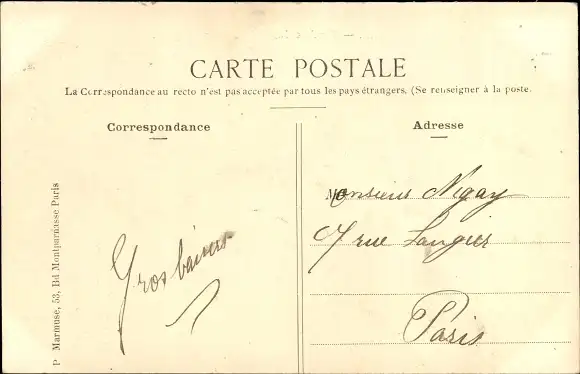 CARTE POSTALE
La Correspondance au recto n'est pas acceptée par tous les pays étrangers. (Se renseigner à la poste.
Correspondance
Gros baisers
Adresse
Monsieur Nigay
7 rue Laugier
Paris
P Marmuse, 53, Bd Montparnasse Paris